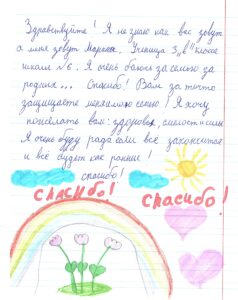 Здравствуйте! Я не знаю как вас зовут
а меня зовут Марина. Ученица 3 "в" класса
школи №6. Я очень боюсь за семью за
родних... Спасибо! Вам за то что
защищаете мою семью! Я хочу
пожелать вам: здоровья, смелости и силы
Я очень буду рада если всё закончится
и всё будет как раньше!
спасибо!
СПАСИБО! Спасибо!